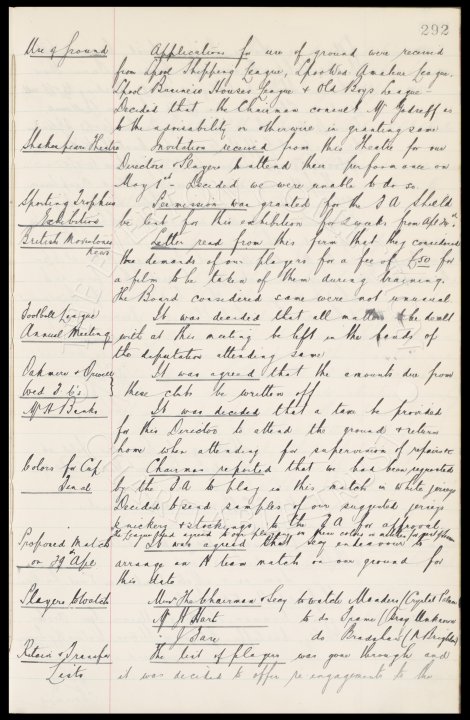 292
Use of Ground Applications for use of ground were received
from Lpool Shopping League, Lpool Wed. Amateur League,
Lpool Business Houses League & Old Boys League
Decided that the Chairman consult Mr as
to the advisability or otherwise in granting same
Shakespeare Theatre Invitation received from this Theatre for our
Directors & Players to attend their performance on
May 1st - Decided we were unable to do so.
Sporting Trophies Permission was granted for the F A Shield
Exhibition be lent for this exhibition for 2 weeks from Apl
British Movietone Letter read from this firm that they considered
News the demands of our players for a fee of £50 for
a film to be taken of them during training.
The Board considered same were not unusual
Football League It was decided that all matters to be dealt
Annual Meeting with at this meeting be left in the hands of
the deputation attending same
Oakmere & It was agreed that the amounts due from
Wed F.C's these clubs be written off
Mr H Banks It was decided that a taxi be provided
for this Director to attend the ground & return
home when attending for supervision of repairs &c
Colors for Cup Chairman reported that we had been requested
Final by the F A to play in this match in white jerseys
Decided to send samples of our suggested jerseys
knickers & stockings to the F A for approval
the League agreed to our in these colors in
Proposed Match It was agreed that Secy endeavour to
on 29th Apl arrange an A team match on our ground for
this date
Players to Watch Messrs The Chairman & Secy to watch Manders (Crystal Palace)
Mr W Hart to do (Gray Unknown
" J Sare do Bradshaw (N. Brighton
Retain & Transfer The list of players was gone through and
Lists it was decided to offer re-engagements to the